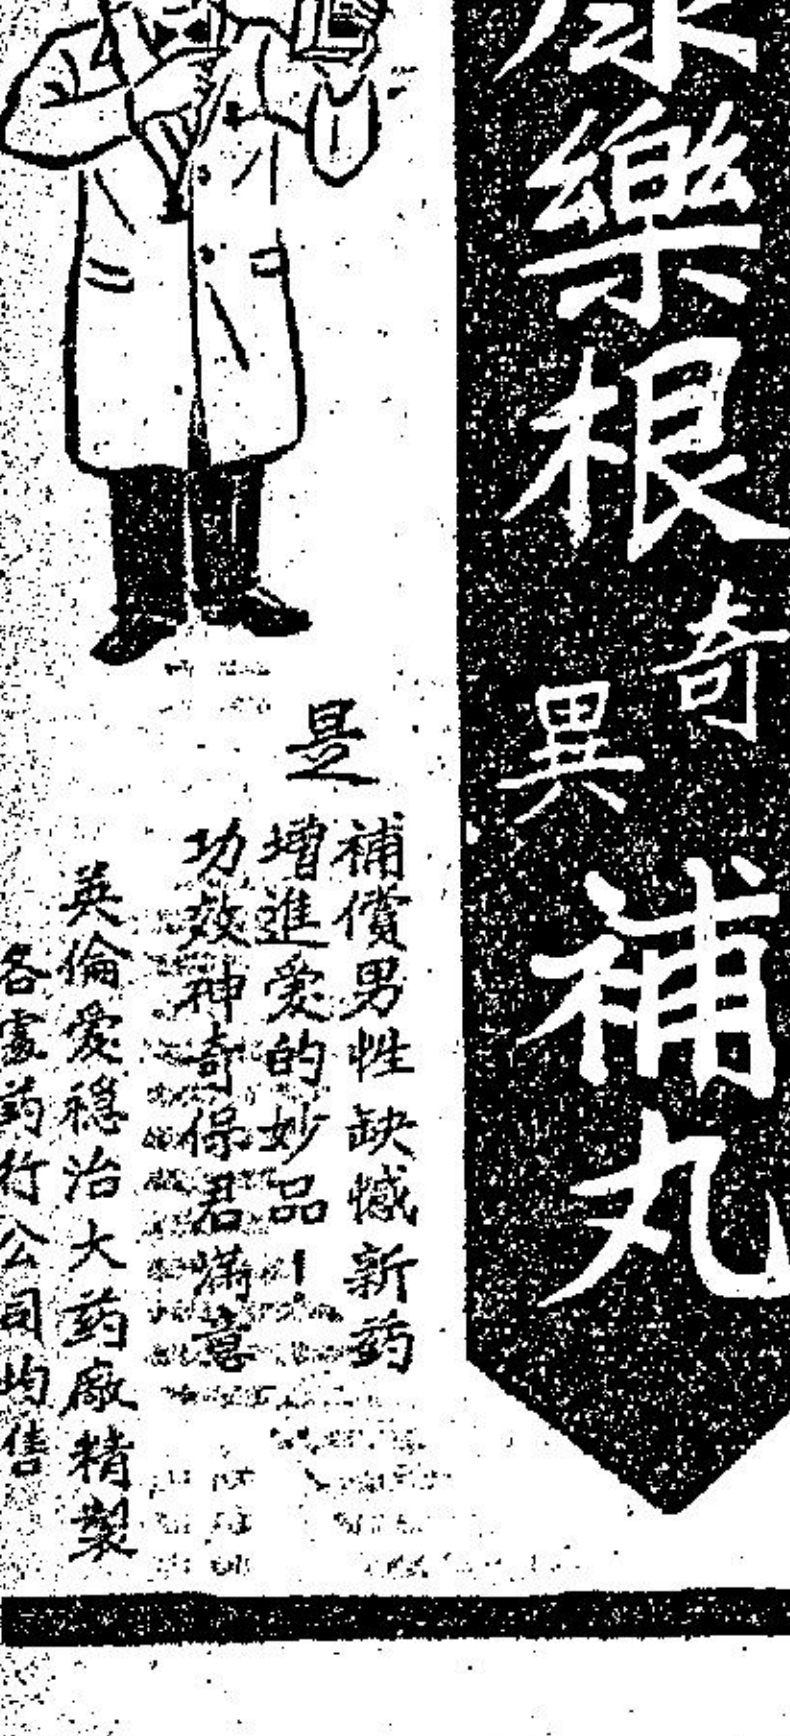 康樂根奇異補丸
是
補償男性缺憾新药
增進愛的妙品!
功效神奇保君滿意
英倫愛穩治大药廠精製
各處药行公司均售